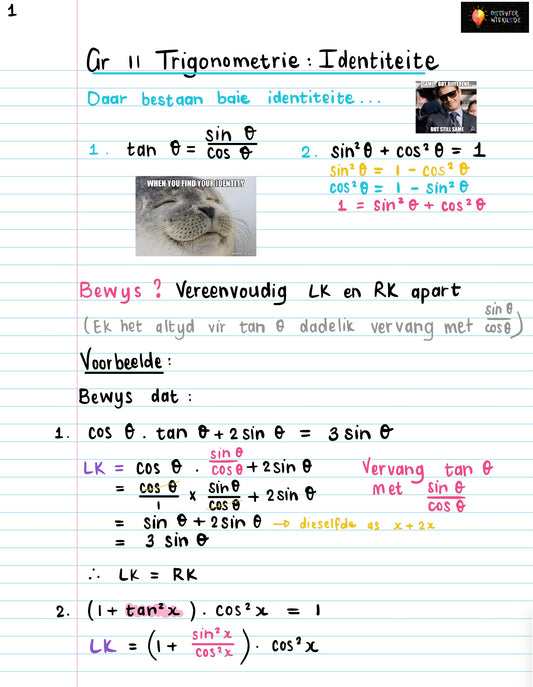 1
ONTSYFER
WISKUNDE
Gr 11 Trigonometrie : Identiteite
Daar bestaan baie identiteite...
SAME, BUT DIFFERENT...
BUT STILL SAME
1. tan θ = sin θ / cos θ
2. sin²θ + cos²θ = 1
sin²θ = 1 - cos²θ
cos²θ = 1 - sin²θ
1 = sin²θ + cos²θ
WHEN YOU FIND YOUR IDENTITY
Bewys ? Vereenvoudig LK en RK apart
(Ek het altyd vir tan θ dadelik vervang met sin θ / cos θ)
Voorbeelde :
Bewys dat :
1. cos θ . tan θ + 2 sin θ = 3 sin θ
LK = cos θ . sin θ / cos θ + 2 sin θ
Vervang tan θ
met sin θ / cos θ
= cos θ / 1 × sin θ / cos θ + 2 sin θ
= sin θ + 2 sin θ → dieselfde as x + 2x
= 3 sin θ
∴ LK = RK
2. (1 + tan²x) . cos²x = 1
LK = (1 + sin²x / cos²x) . cos²x